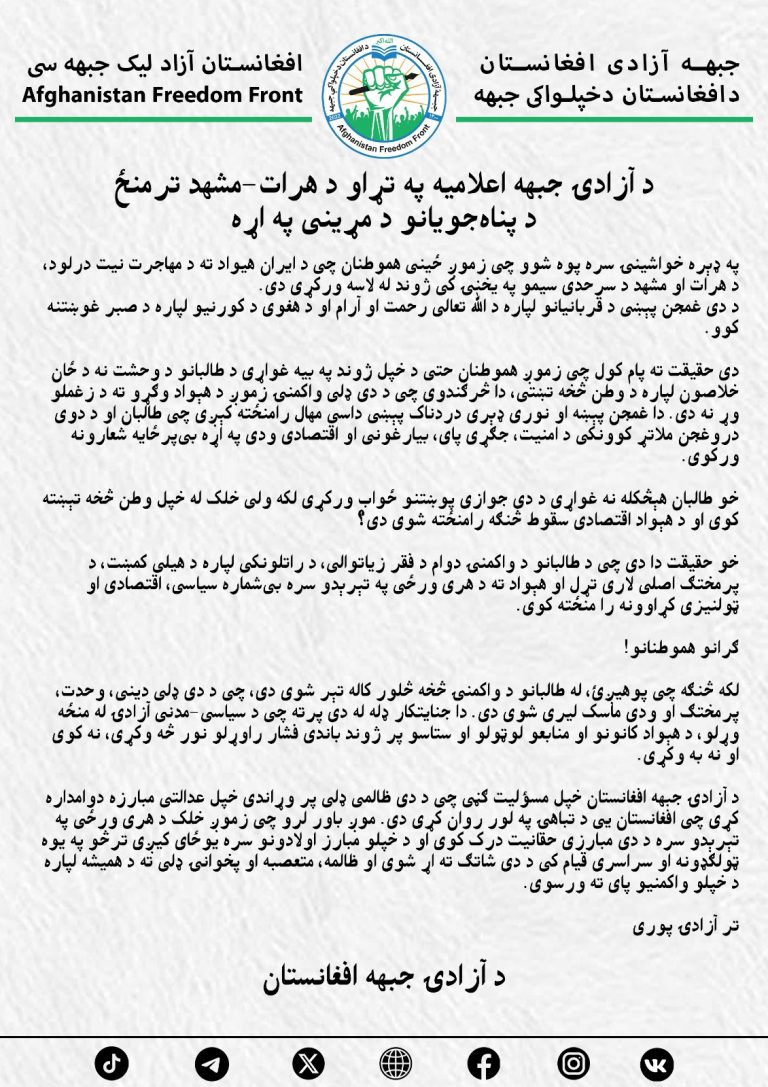 جبهه آزادی افغانستان
دافغانستان دخپلواکۍ جبهه
افغانستان آزاد لیک جبهه سی
Afghanistan Freedom Front
الله اکبر
Afghanistan Freedom Front
د آزادۍ جبهه اعلامیه په تړاو د هرات-مشهد ترمنځ
د پناه‌جویانو د مړینی په اړه
په ډېره خواشینۍ سره پوه شوو چی زموږ ځینی هموطنان چی د ایران هیواد ته د مهاجرت نیت درلود،
د هرات او مشهد د سرحدی سیمو په یخنۍ کی ژوند له لاسه ورکړی دی.
د دی غمجن پیښی د قربانیانو لپاره د الله تعالی رحمت او آرام او د هغوی د کورنیو لپاره د صبر غوښتنه
کوو.
دی حقیقت ته پام کول چی زموږ هموطنان حتی د خپل ژوند په بیه غواړی د طالبانو د وحشت نه د ځان
خلاصون لپاره د وطن څخه تښتی، دا څرګندوی چی د دی ډلی واکمنی زموږ د هېواد وګړو ته د زغملو
وړ نه دی. دا غمجن پیښه او نوری ډېری دردناک پیښی داسی مهال رامنځته کیږی چی طالبان او د دوی
دروغجن ملاتړ کوونکی د امنیت، جګړی پای، بیارغونی او اقتصادی ودی په اړه بی‌پرځایه شعارونه
ورکوی.
خو طالبان هېڅکله نه غواړی د دی جوازی پوښتنو ځواب ورکړی لکه ولی خلک له خپل وطن څخه تېښته
کوی او د هېواد اقتصادی سقوط څنګه رامنځته شوی دی؟
خو حقیقت دا دی چی د طالبانو د واکمنۍ دوام د فقر زیاتوالی، د راتلونکی لپاره د هیلی کمښت، د
پرمختګ اصلی لاری تړل او هېواد ته د هری ورځی په تېرېدو سره بی‌شماره سیاسی، اقتصادی او
ټولنیزی کړاوونه را منځته کوی.
ګرانو هموطنانو!
لکه څنګه چی پوهیږئ، له طالبانو د واکمنۍ څخه څلور کاله تېر شوی دی، چی د دی ډلی دینی، وحدت،
پرمختګ او ودی ماسک لیری شوی دی. دا جنایتکار ډله له دی پرته چی د سیاسی-مدنی آزادۍ له منځه
وړلو، د هېواد کانونو او منابعو لوټولو او ستاسو پر ژوند باندی فشار راوړلو نور څه وکړی، نه کوی
او نه به وکړی.
د آزادۍ جبهه افغانستان خپل مسؤلیت ګڼی چی د دی ظالمی ډلی پر وړاندی خپل عدالتی مبارزه دوامداره
کړی چی افغانستان یی د تباهی په لور روان کړی دی. موږ باور لرو چی زموږ خلک د هری ورځی په
تېرېدو سره د دی مبارزی حقانیت درک کوی او د خپلو مبارز اولادونو سره یوځای کیږی ترڅو په یوه
ټولګډونه او سراسری قیام کی د دی شاتګ ته اړ شوی او ظالمه، متعصبه او پخوانۍ ډلی ته د همیشه لپاره
د خپلو واکمنیو پای ته ورسوی.
تر آزادۍ پوری
د آزادۍ جبهه افغانستان